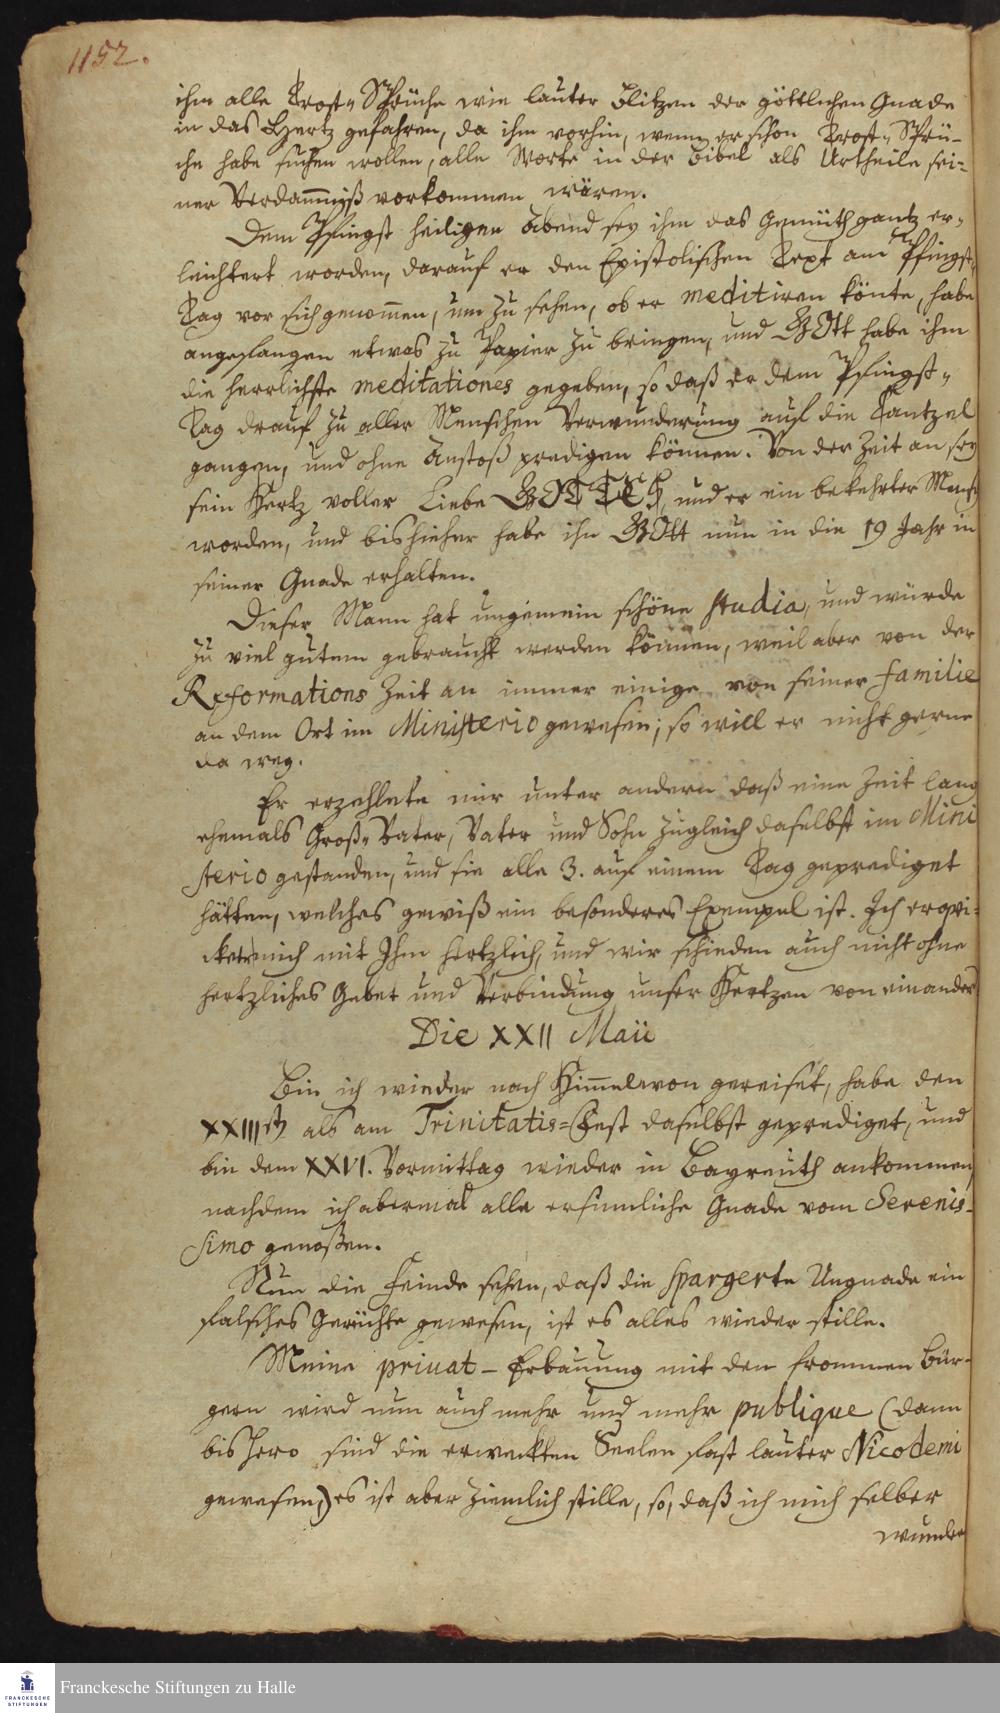 1152.
ihm alle Trost-Sprüche wie lauter Blitzen der göttlichen Gnade
in das Hertz gefahren, da ihm vorhin, wenn er schon Trost-Sprü-
che habe suchen wollen, alle Worte in der Bibel als Urtheile sei-
ner Verdam̅niß vorkommen wären.
Dem Pfingst heiligen Abend sey ihm das Gemüth gantz er-
leichtert worden, darauf er den Epistolischen Text am Pfingst-
Tag vor sich genom̅en, um zu sehen, ob er meditiren könte, habe
angefangen etwas zu Papier zu bringen, und GOtt habe ihm
die herrlichste meditationes gegeben, so daß er dem Pfingst-
Tag drauf zu aller Menschen Verwunderung auf die Cantzel
gangen, und ohne Anstoß predigen können. Von der Zeit an sey
sein Hertz voller Liebe GOTTES, und er ein bekehrter Mensch
worden, und bishieher habe ihn GOtt nun in die 19 Jahr in
seiner Gnade erhalten.
Dieser Mann hat ungemein schöne studia, und würde
zu viel gutem gebraucht werden können, weil aber von der
Reformations Zeit an immer einige von seiner familie
an dem Ort im Ministerio gewesen; so will er nicht gerne
da weg.
Er erzehlete mir unter andern daß eine Zeit lang
ehemals Groß-Vater, Vater und Sohn zugleich daselbst im Mini
sterio gestanden, und sie alle 3. auf einem Tag geprediget
hätten, welches gewiß ein besonderes Exempel ist. Ich erqvi-
ckete mich mit Ihm hertzlich, und wir schieden auch nicht ohne
hertzliches Gebet und Verbindung unser Hertzen von einander
Die XXII Maii
Bin ich wieder nach Him̅elcron gereiset, habe den
XXIIIsten als am Trinitatis-Fest daselbst geprediget, und
bin dem XXVI. Vormittag wieder in Bayreuth ankommen,
nachdem ich abermal alle ersinnliche Gnade vom Serenis-
simo genoßen.
Nun die Feinde sehen, daß die spargerte Ungnade ein
falsches Gerüchte gewesen, ist es alles wieder stille.
Meine privat-Erbauung mit den frommen Bür-
gern wird nun auch mehr und mehr publique (dann
bishero sind die erweckten Seelen fast lauter Nicodemi
gewesen,) es ist aber ziemlich stille, so, daß ich mich selber
wundre
Franckesche Stiftungen zu Halle
FRANCKESCHE
STIFTUNGEN